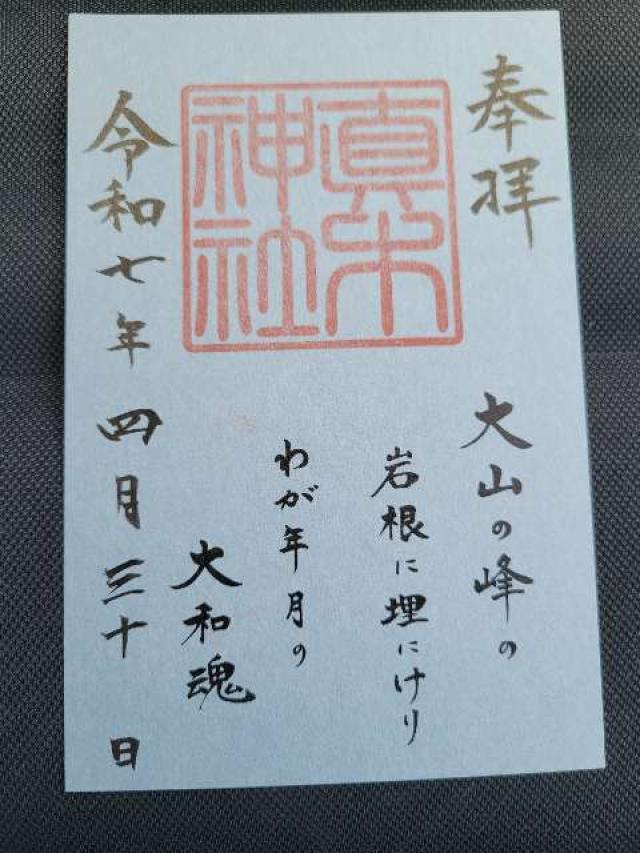 奉拝
大山の峰の
岩根に埋にけり
わが年月の
大和魂
真木神社
令和七年四月三十日